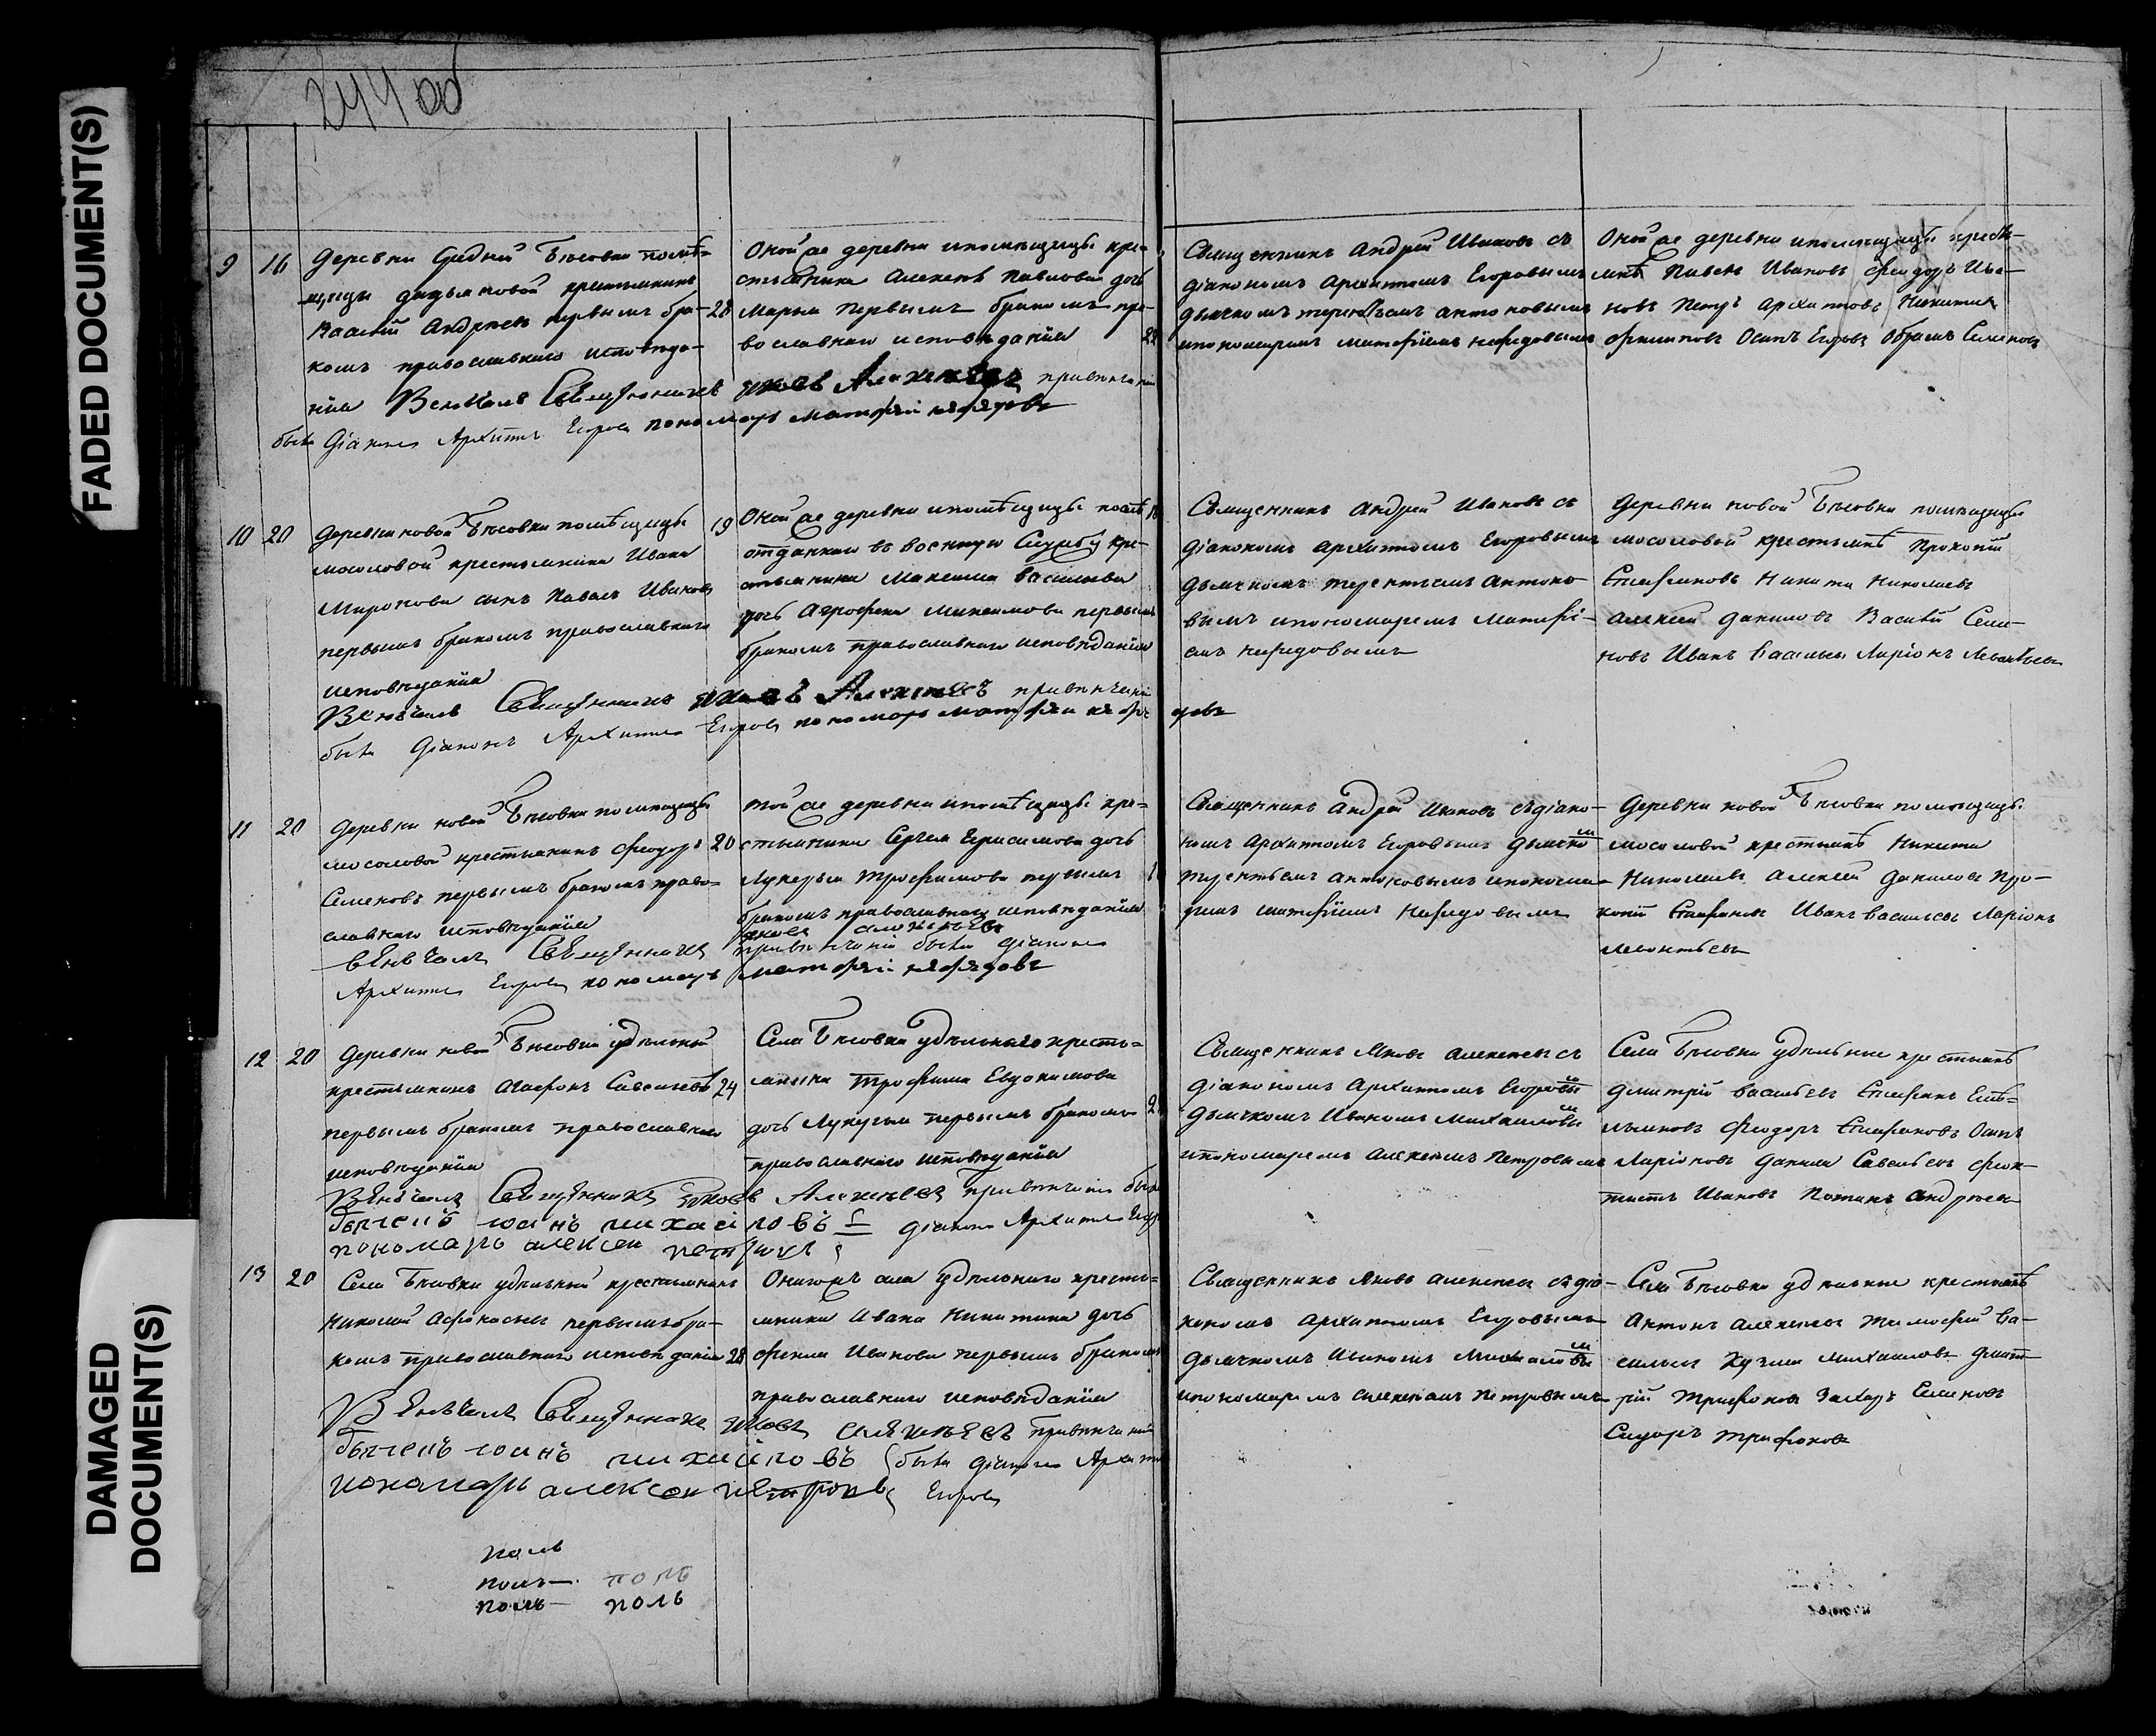 FADED DOCUMENT(S)
DAMAGED DOCUMENT(S)
244 об
9
16
деревни Средней Бѣсовки помѣ-
щицы крестьянинъ
Василій Андреевъ первымъ бра-
комъ православнаго исповѣда-
нія
28
Оной же деревни и помѣщицы кре-
стьянина Алексея Павлова дочь
Марья первымъ бракомъ пра-
вославнаго исповѣданія
22
Священникъ Андрей Ивановъ съ
діакономъ Архипомъ Егоровымъ
дьячкомъ терентьемъ антоновымъ
и пономаремъ матфіемъ нефедовымъ
Оной же деревни и помѣщицы кресть-
янѣ Павелъ Ивановъ Феодоръ Ива-
новъ Петръ Архиповъ Никита
Филиповъ Осипъ Егоровъ Абрамъ Семеновъ
Венчалъ Священникъ яковъ Алексеевъ привенчаніи
были діаконъ Архипъ Егоровъ пономарь матфей нефедовъ
10
20
деревни новой Бѣсовки помѣщицы
мосоловой крестьянина Ивана
Миронова сынъ Павелъ Ивановъ
первымъ бракомъ православнаго
исповѣданія
19
Оной же деревни и помѣщицы
отданнаго въ военную Службу кре-
стьянина Максима Васильева
дочь Агрофена Максимова первымъ
бракомъ православнаго исповѣданія
18
Священникъ Андрей Ивановъ съ
діакономъ Архипомъ Егоровымъ
дьячкомъ терентьемъ Антоно-
вымъ и пономаремъ Матфі-
емъ нефедовымъ
деревни новой Бѣсовки помѣщицы
мосоловой крестьянѣ Прокопій
Епифановъ Никита Николаевъ
Алексей Даниловъ Василій Семе-
новъ Иванъ Васильевъ Ларіонъ Леонтьевъ
Венчалъ Священникъ яковъ Алексеевъ привенчаніи
были діаконъ Архипъ Егоровъ пономарь матфей нефе
довъ
11
20
деревни новой Бѣсовки помѣщицы
мосоловой крестьянинъ Феодоръ
Семеновъ первымъ бракомъ право-
славнаго исповѣданія
20
той же деревни и помѣщицы кре-
стьянина Сергея Герасимова дочь
Лукерья Трофимова первымъ
бракомъ православнаго исповѣданія
Священникъ Андрей Ивановъ съ діако-
номъ Архипомъ Егоровымъ дьячко
мъ
терентьемъ антоновымъ и понома-
ремъ матфіемъ Нефедовымъ
деревни новой Бѣсовки помѣщицы
мосоловой крестьянѣ Никита
Николаевъ Алексей Даниловъ Про-
копій Епифановъ Иванъ Васильевъ Ларіонъ
Леонтьевъ
венчалъ Священникъ яковъ алексеевъ
привенчаніи были діаконъ
Архипъ Егоровъ пономарь матфей нефедовъ
12
20
деревни новой Бѣсовки удѣльный
крестьянинъ Агафонъ Савельевъ
первымъ бракомъ православнаго
исповѣданія
24
Села Бѣсовки удѣльнаго кресть-
янина Трофима Евдокимова
дочь Лукерья первымъ бракомъ
православнаго исповѣданія
Священникъ Яковъ алексеевъ съ
діакономъ Архипомъ Егоровы
мъ
дьячкомъ Иваномъ Михаиловы
мъ
и пономаремъ алексеемъ петровымъ
Села Бѣсовки удѣльные крестьянѣ
Дмитрій Васильевъ Епифанъ Емѣ-
льяновъ Феодоръ Епифановъ Осипъ
Ларіоновъ Данила Савельевъ Феок-
тистъ Ивановъ Потапъ Андреевъ
Венчалъ Священникъ яковъ Алексеевъ привенчаніи были
дьячекъ иоанъ михаiловъ діаконъ Архипъ Егоро
пономарь алексеи петровъ
13
20
Села Бѣсовки удѣльный крестьянинъ
Николай Афонасьевъ первымъ бра-
комъ православнаго исповѣданія
28
Онагожъ села удѣльнаго кресть-
янина Ивана Никитина дочь
Фекла Иванова первымъ бракомъ
православнаго исповѣданія
Священникъ Яковъ алексеевъ съ діа-
кономъ Архипомъ Егоровымъ
дьячкомъ Иваномъ Михаиловы
мъ
и пономаремъ алексеемъ Петровымъ
Села Бѣсовки удѣльные крестьянѣ
Антонъ алексеевъ тимофей Ва-
сильевъ Кузма Михаиловъ Дмит-
рій Трифоновъ Захаръ Семеновъ
Сидоръ трифоновъ
Венчалъ Священникъ яковъ алексеевъ привенчаніи
дьячекъ иоанъ михаiловъ были діаконъ Архипъ
пономарь алексеи петровъ Егоровъ